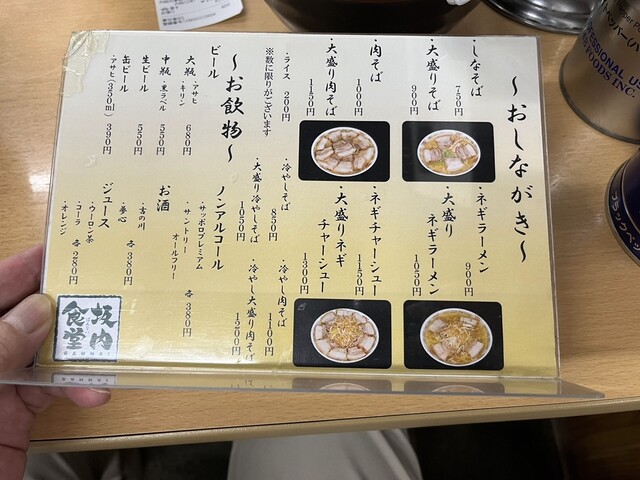 ～おしながき～
・しなそば
750円
・大盛りしなそば
900円
・肉そば
1000円
・大盛り肉そば
1150円
・ライス 200円
※数に限りがございます
・ネギラーメン
900円
・大盛り
ネギラーメン
1050円
・ネギチャーシュー
1150円
・大盛りネギ
チャーシュー
1300円
・冷やしそば
850円
・大盛り冷やしそば
1050円
・冷やし肉そば
1100円
・冷やし大盛り肉そば
1200円
～お飲物～
ビール
大瓶・アサヒ
・キリン
680円
中瓶・黒ラベル
550円
生ビール
550円
缶ビール
・アサヒ(350ml) 390円
ノンアルコール
・サッポロプレミアム
・サントリー
オールフリー
各380円
お酒
・宮の川
・夢心
各380円
ジュース
・ウーロン茶
・コーラ
・オレンジ
各280円
坂内
食堂
BANNAI
PROFESSIONAL US
FOODS INC.